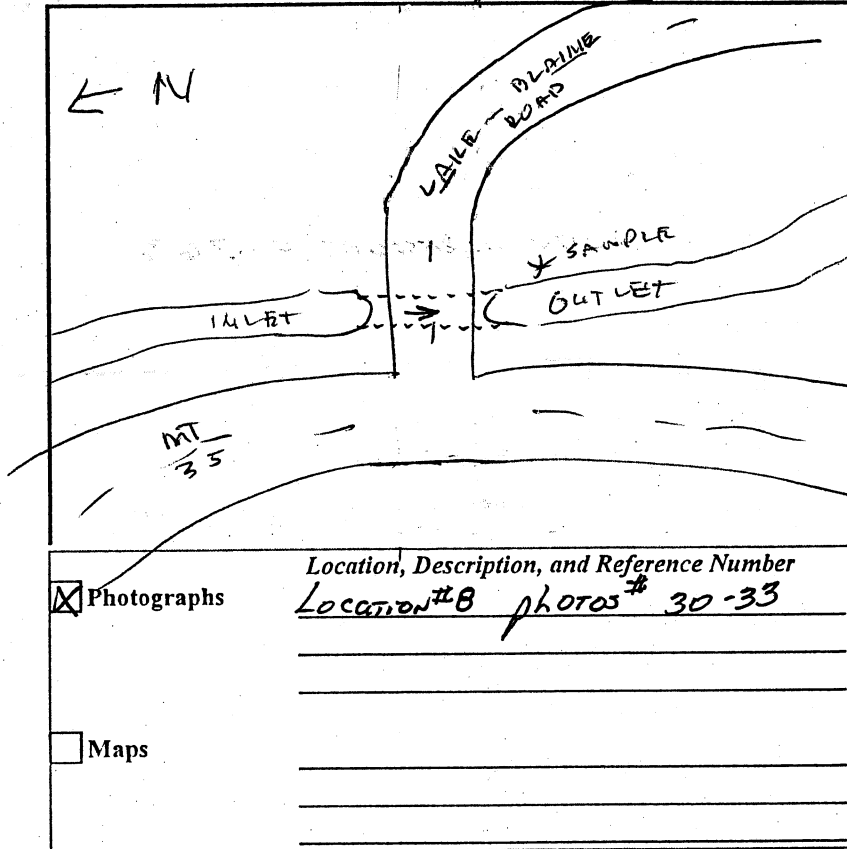 ← N
BLAINE
LAKE - ROAD
SAMPLE
OUTLET
INLET
MT
35
Location, Description, and Reference Number
Photographs LOCATION #8 PHOTOS # 30-33
Maps